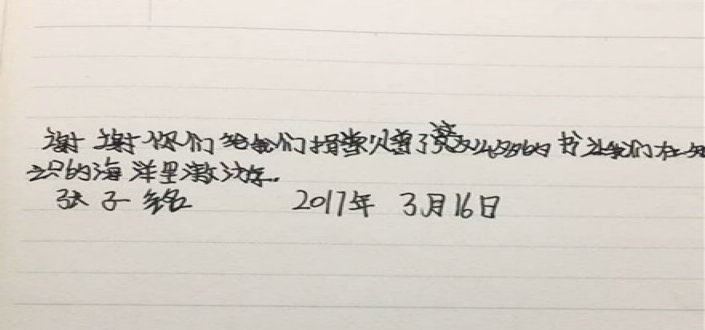 谢谢你们给我们捐赏贝曾了的书让我们在知
识的海洋里激游.
张子铭 2017年 3月16日